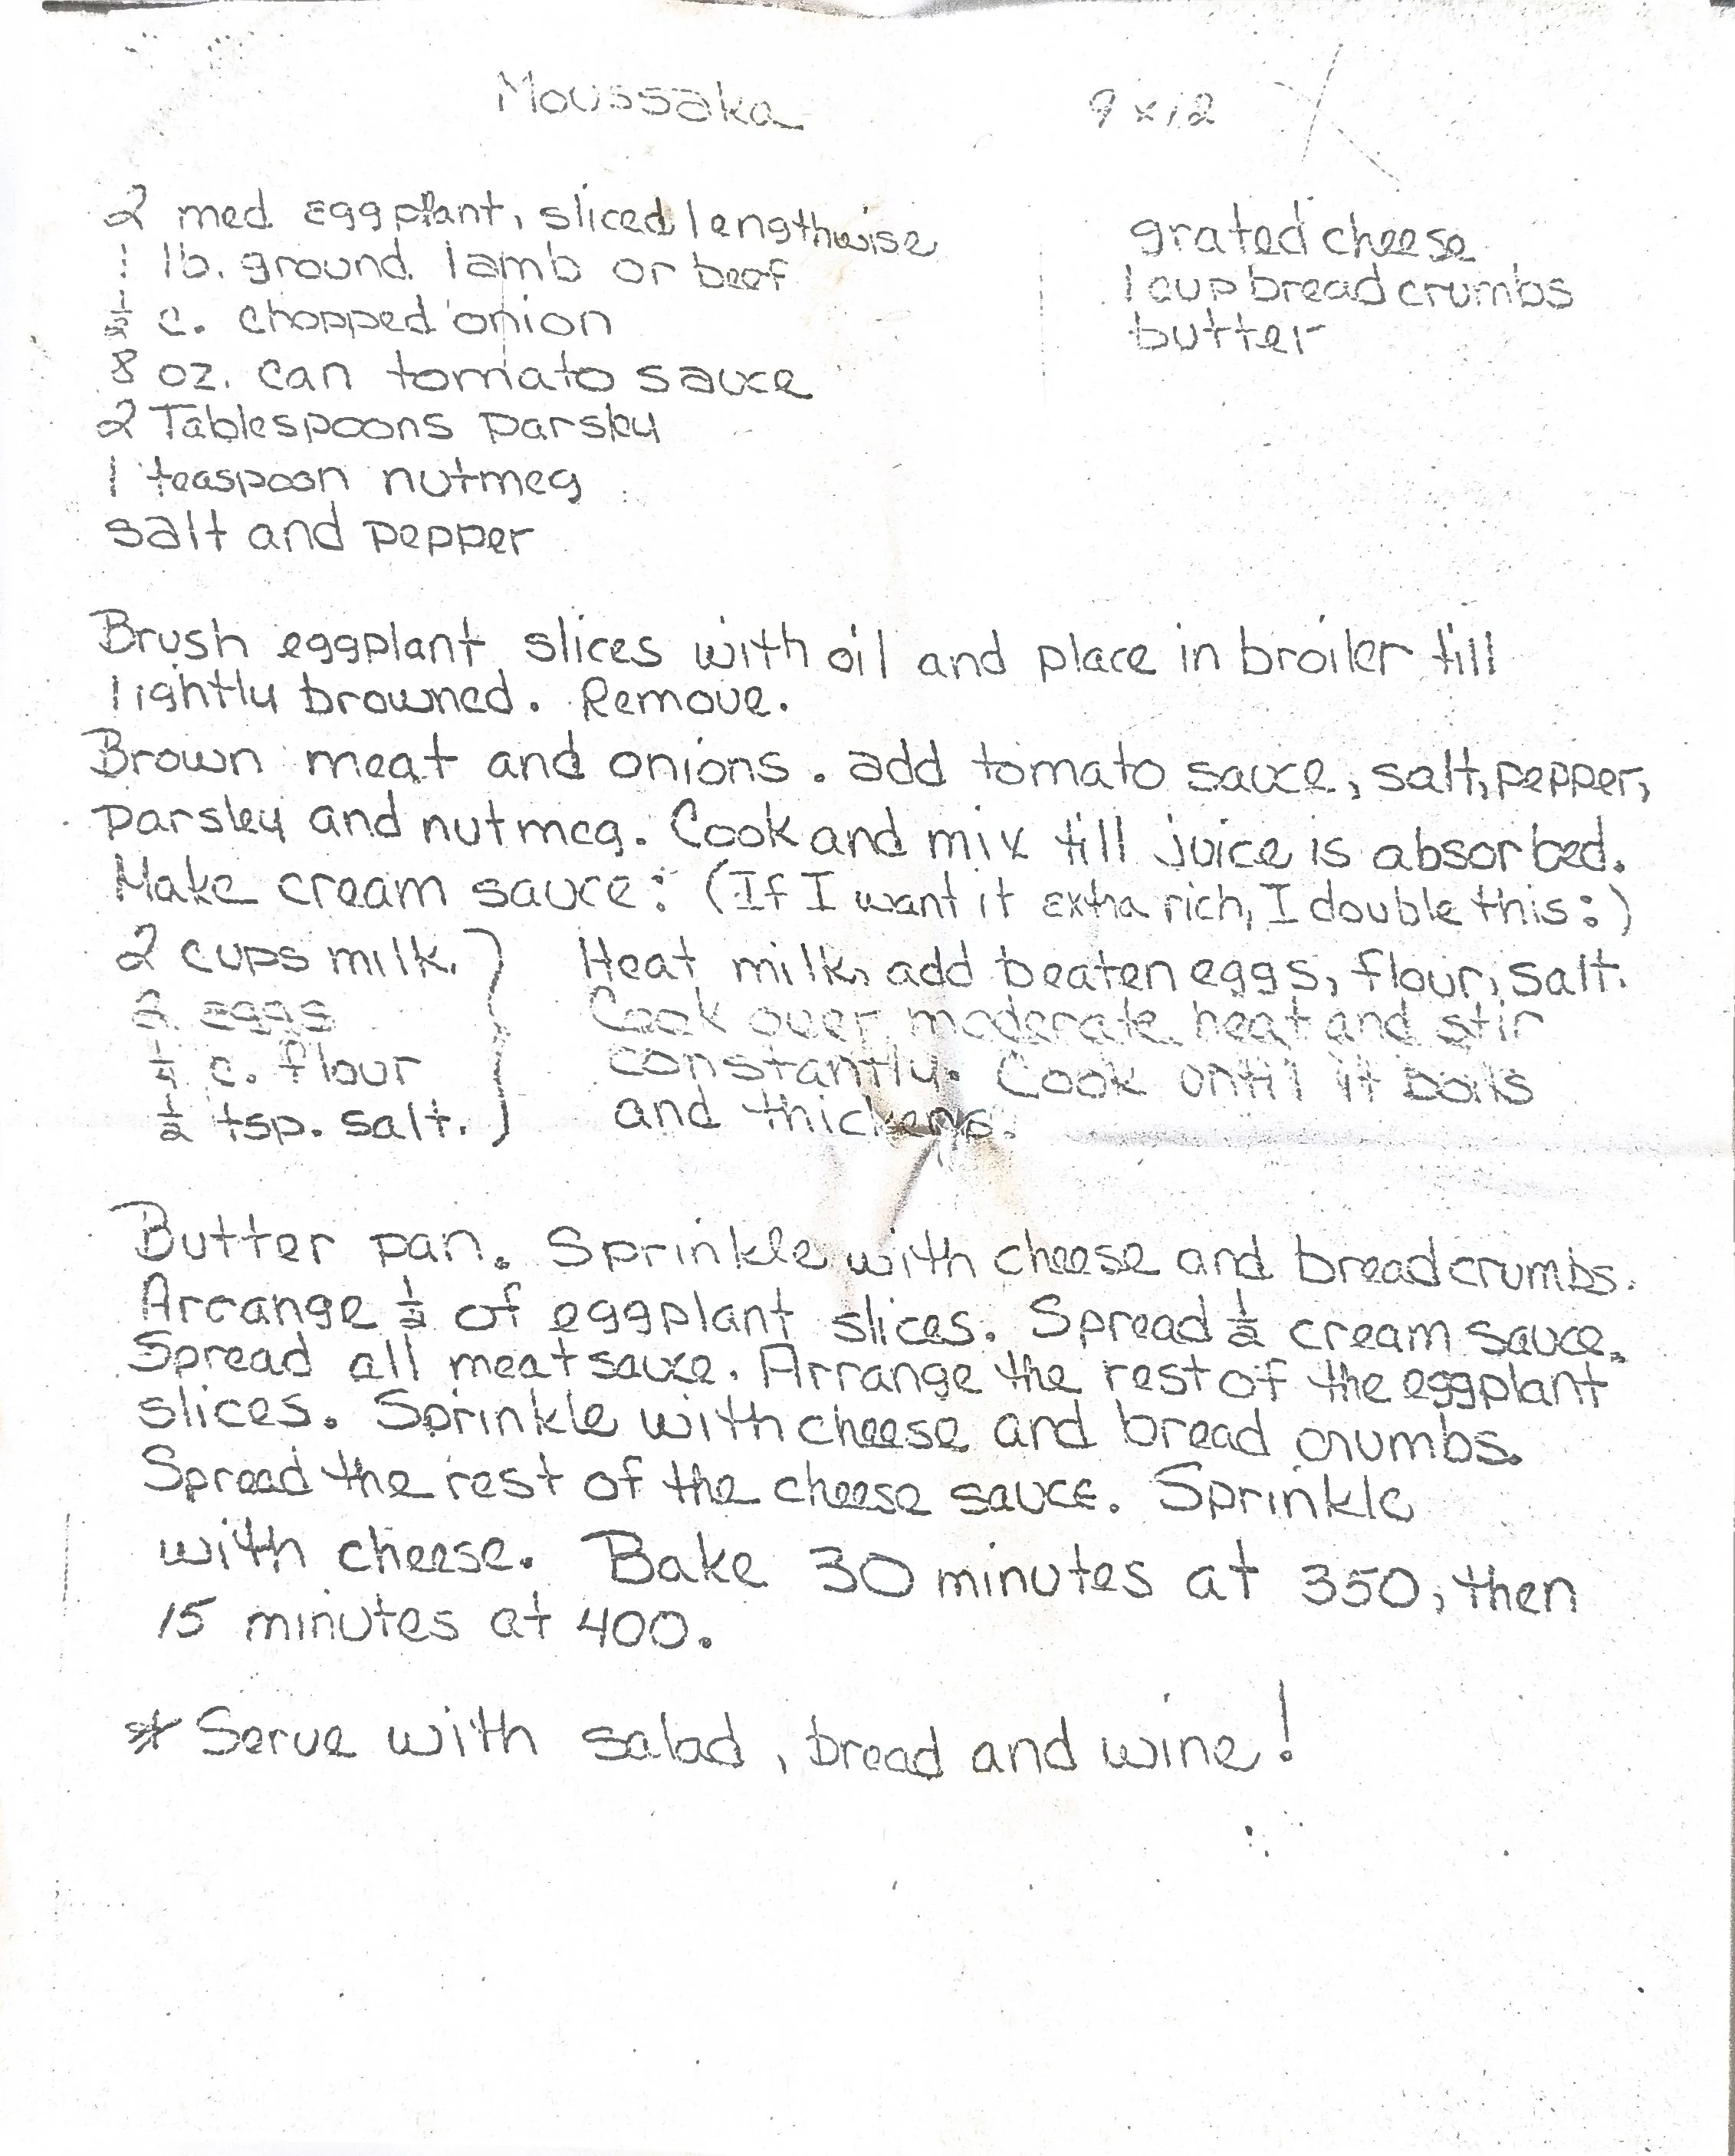 Moussaka
9 x 12
2 med eggplant, sliced lengthwise
1 lb. ground lamb or beef
½ c. chopped onion
8 oz. can tomato sauce
2 Tablespoons parsley
1 teaspoon nutmeg
salt and pepper
grated cheese
1 cup bread crumbs
butter
Brush eggplant slices with oil and place in broiler till
lightly browned. Remove.
Brown meat and onions. add tomato sauce, salt, pepper,
parsley and nutmeg. Cook and mix till juice is absorbed.
Make cream sauce: (If I want it extra rich, I double this:)
2 cups milk.
2 eggs
¼ c. flour
½ tsp. salt.
Heat milk, add beaten eggs, flour, salt.
Cook over moderate heat and stir
constantly. Cook until it boils
and thickens.
Butter pan. Sprinkle with cheese and bread crumbs.
Arrange ½ of eggplant slices. Spread ½ cream sauce.
Spread all meat sauce. Arrange the rest of the eggplant
slices. Sprinkle with cheese and bread crumbs.
Spread the rest of the cheese sauce. Sprinkle
with cheese. Bake 30 minutes at 350, then
15 minutes at 400.
* Serve with salad, bread and wine!